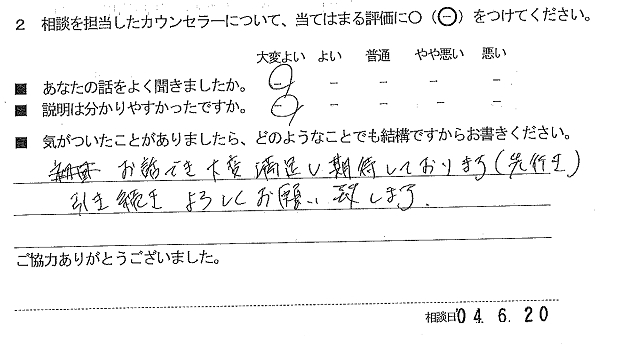 2 相談を担当したカウンセラーについて、当てはまる評価に○(㊀)をつけてください。
大変よい よい 普通 やや悪い 悪い
■ あなたの話をよく聞きましたか。 − − − − −
■ 説明は分かりやすかったですか。 − − − − −
■ 気がついたことがありましたら、どのようなことでも結構ですからお書きください。
お話でき大変満足し期待しております(先行き)
引き続き よろしくお願い致します.
ご協力ありがとうございました。
相談日 04. 6. 20